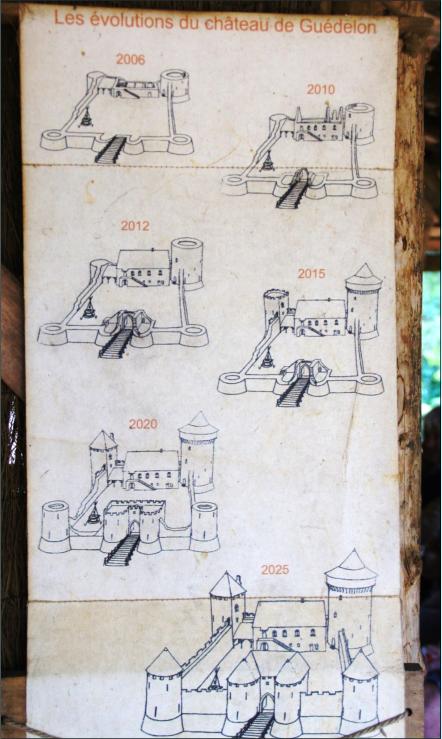 Les évolutions du château de Guédelon
2006
2010
2012
2015
2020
2025